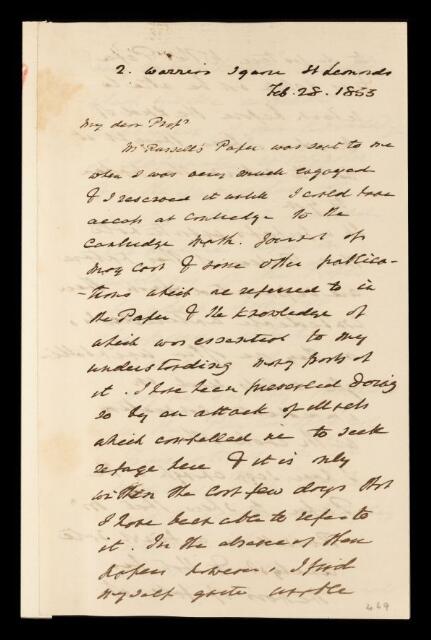 2. Warrior Square St Leonards
Feb. 28. 1855
My dear Profr
Mr Russell's Paper was sent to me
when I was very much engaged
& I reserved it until I could have
access at Cambridge to the
Cambridge Math. Journal of
May last & some other publica-
-tions which are referred to in
the Paper & the knowledge of
which was essential to my
understanding many parts of
it. I have been prevented doing
so by an attack of illness
which compelled me to seek
refuge here & it is only
within the last few days that
I have been able to refer to
it. In the absence of these
papers however, I find
myself quite unable
469